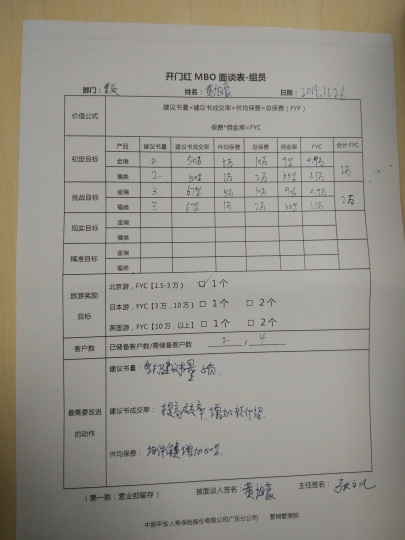 开门红 MBO 面谈表-组员
部门： 姓名： 日期：2019.11.26
价值公式 建议书量*建议书成交率*件均保费=总保费（FYP）
保费*佣金率=FYC
产品 建议书量 建议书成交率 件均保费 总保费 佣金率 FYC 合计 FYC
初定目标 金瑞 2 50% 5万 10万 9% 0.9万
福类 2 50% 1万 2万 55% 1.1万 2万
挑战目标 金瑞 3 67% 5万 10万 9% 0.9万
福类 3 67% 1万 2万 55% 1.1万 2万
现实目标 金瑞
福类
精准目标 金瑞
福类
旅游奖励目标 北京游，FYC【1.5-3 万） □ 1个
日本游，FYC【3 万，10 万） □ 1个 □ 2个
英国游，FYC【10 万，以上】 □ 1个 □ 2个
客户数 已储备客户数/需储备客户数 2 / 4
最需要改进的动作 建议书量： 建议书量
建议书成交率：提高成交率，增加转介绍
件均保费： 件均保费增加50%
（第一联：营业部留存） 被面谈人签名： 主任签名：
中国平安人寿保险股份有限公司广东分公司 营销管理部